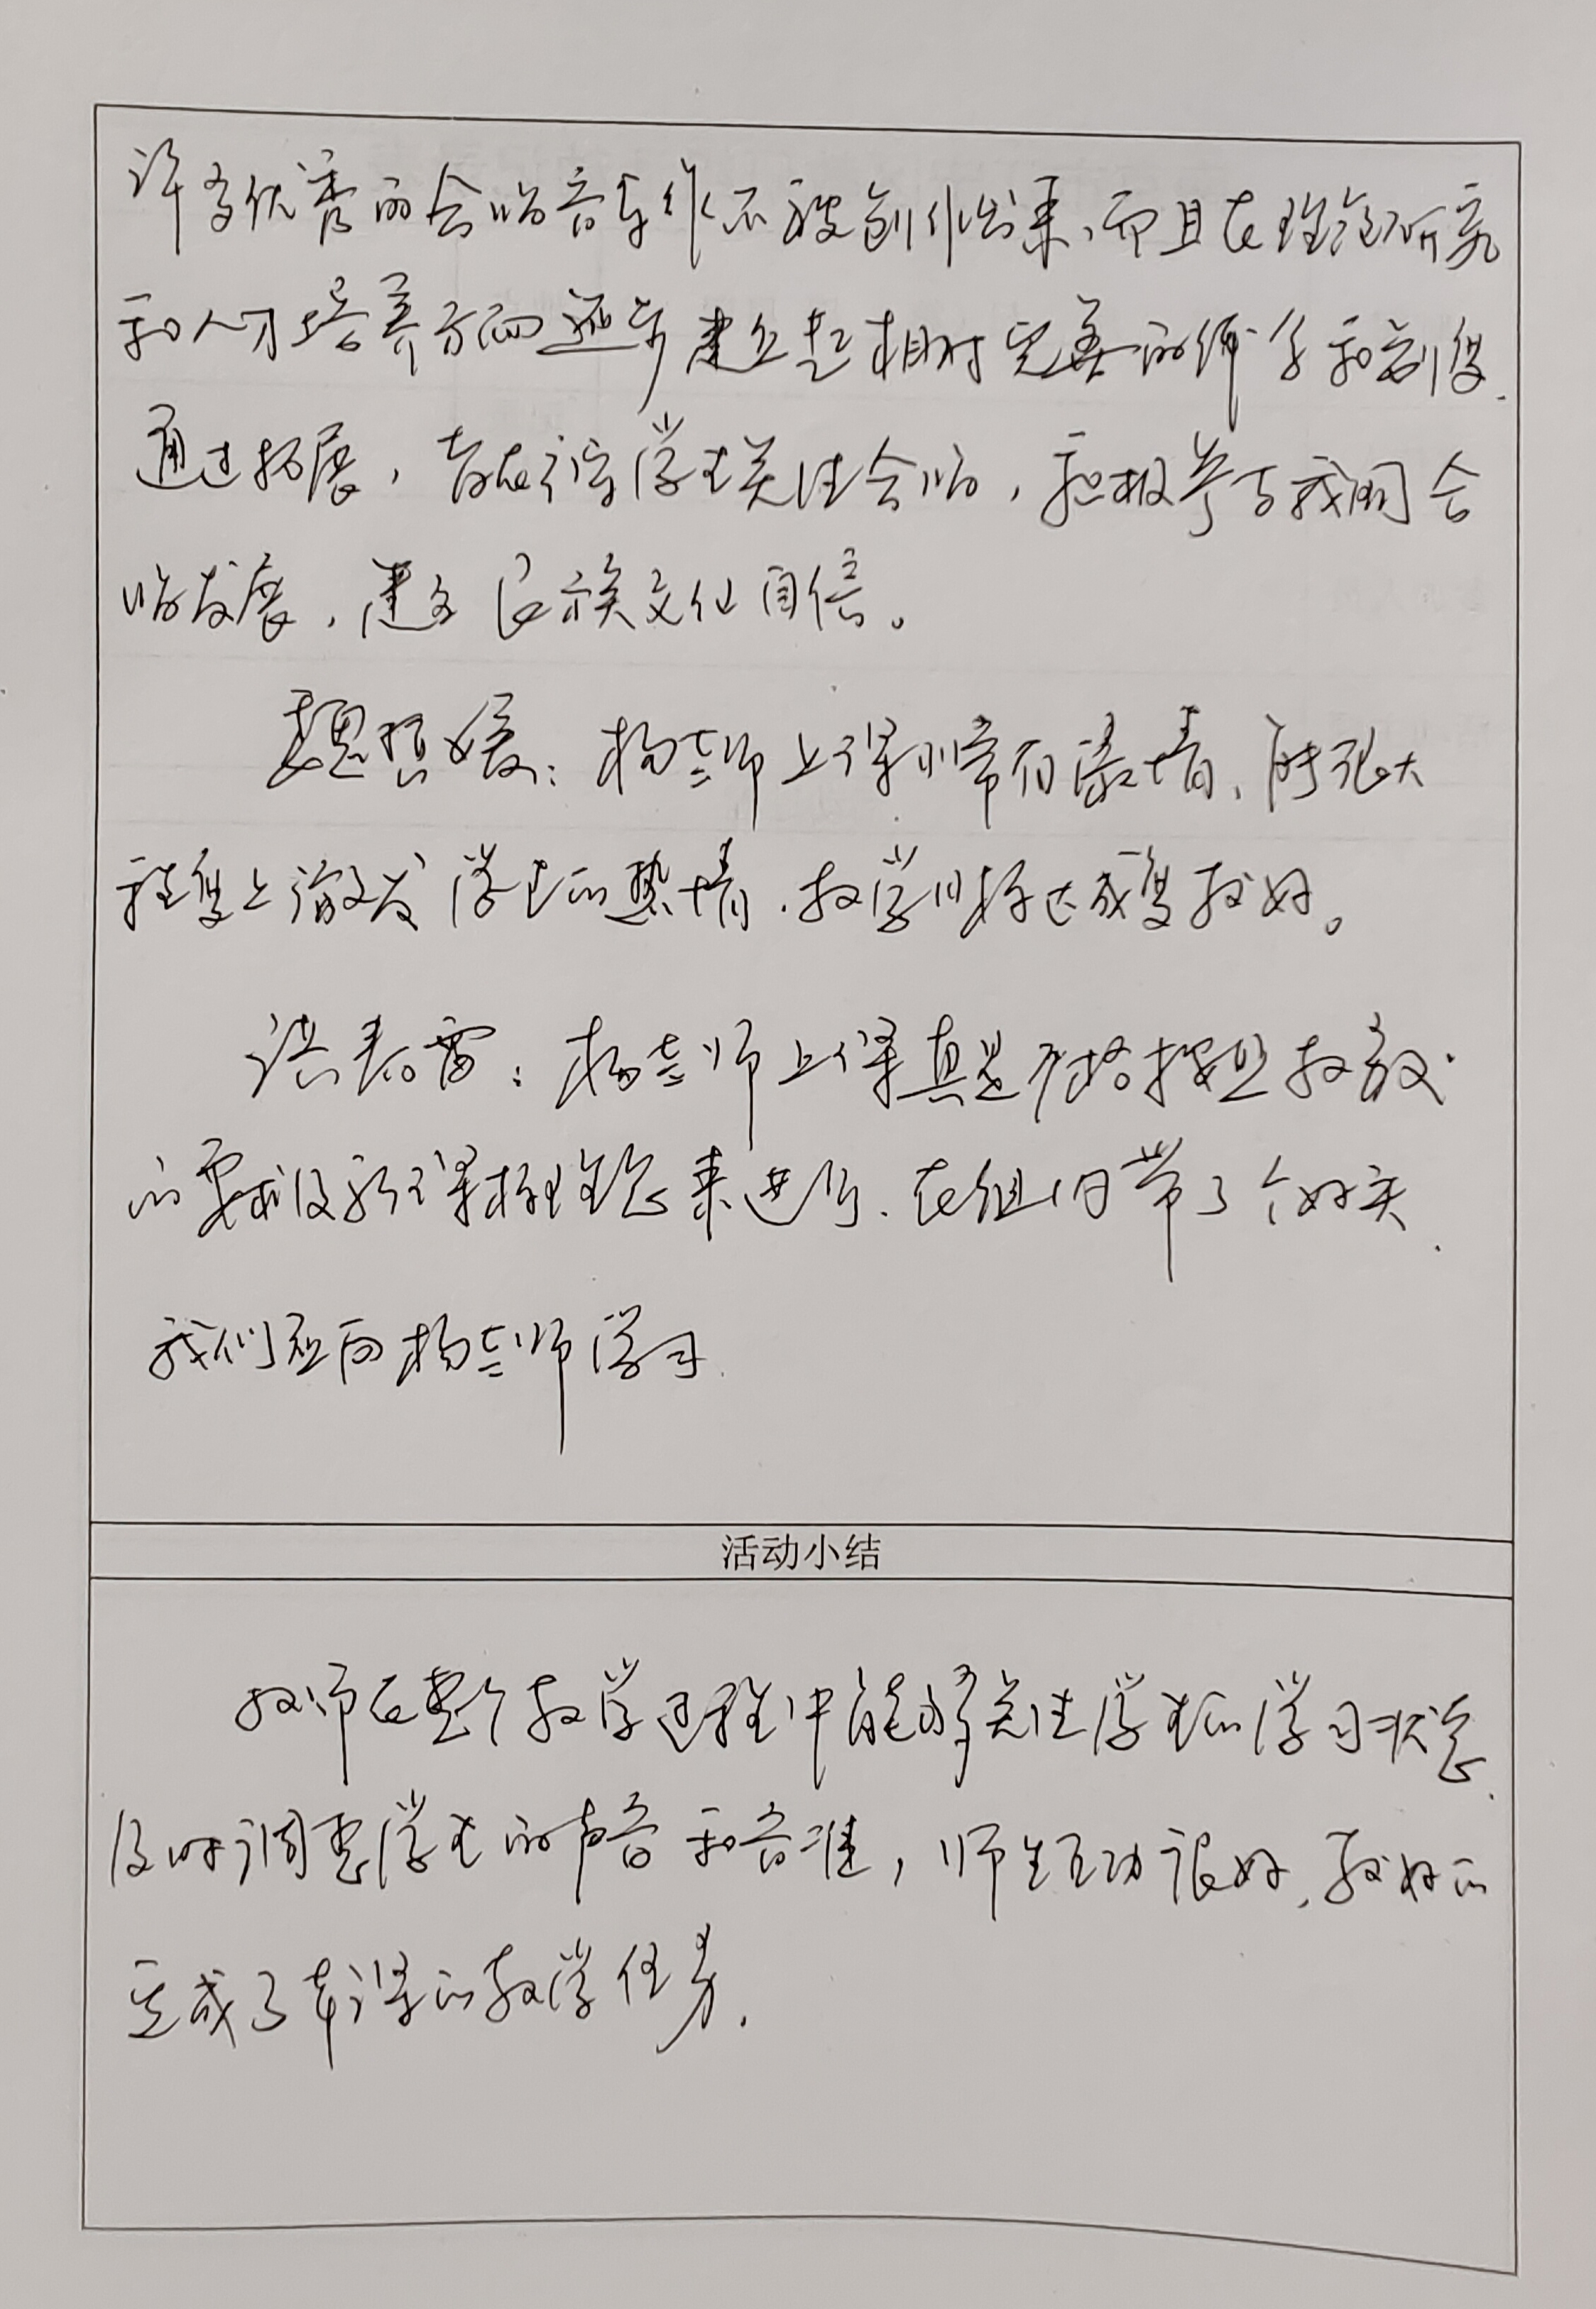 许多优秀的合唱音乐作品被创作出来，而且在理论研究
和人才培养方面逐步建立起相对完善的体系和制度．
通过拓展，旨在引导学生关注合唱，积极参与我国合
唱发展，建立民族文化自信。
杨老师上课非常有激情，能很大
程度上激发学生的热情．教学目标达成度较好。
洪春雷：杨老师上课真是严格按照教案
的要求及新课标理念来进行．在组内带了个好头．
我们应向杨老师学习．
活动小结
教师在整个教学过程中能够关注学生的学习状态．
及时调整学生的声音和音准，师生互动很好．较好的
完成了本课的教学任务．